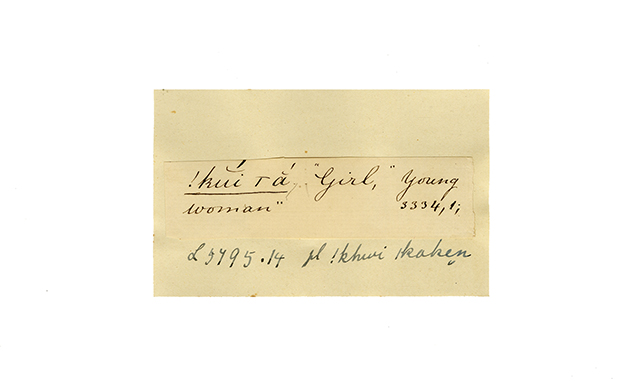 !kúi τá, "Girl," Young
woman" 3334,1;
L 3795.14 pl !khwi |kaken̯